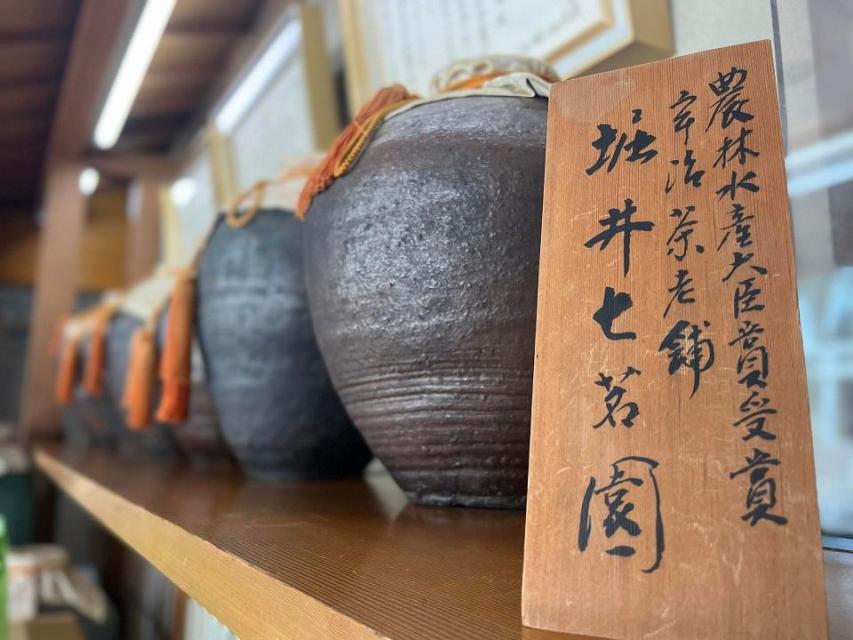 農林水産大臣賞受賞
宇治茶老舗
堀井七茗園